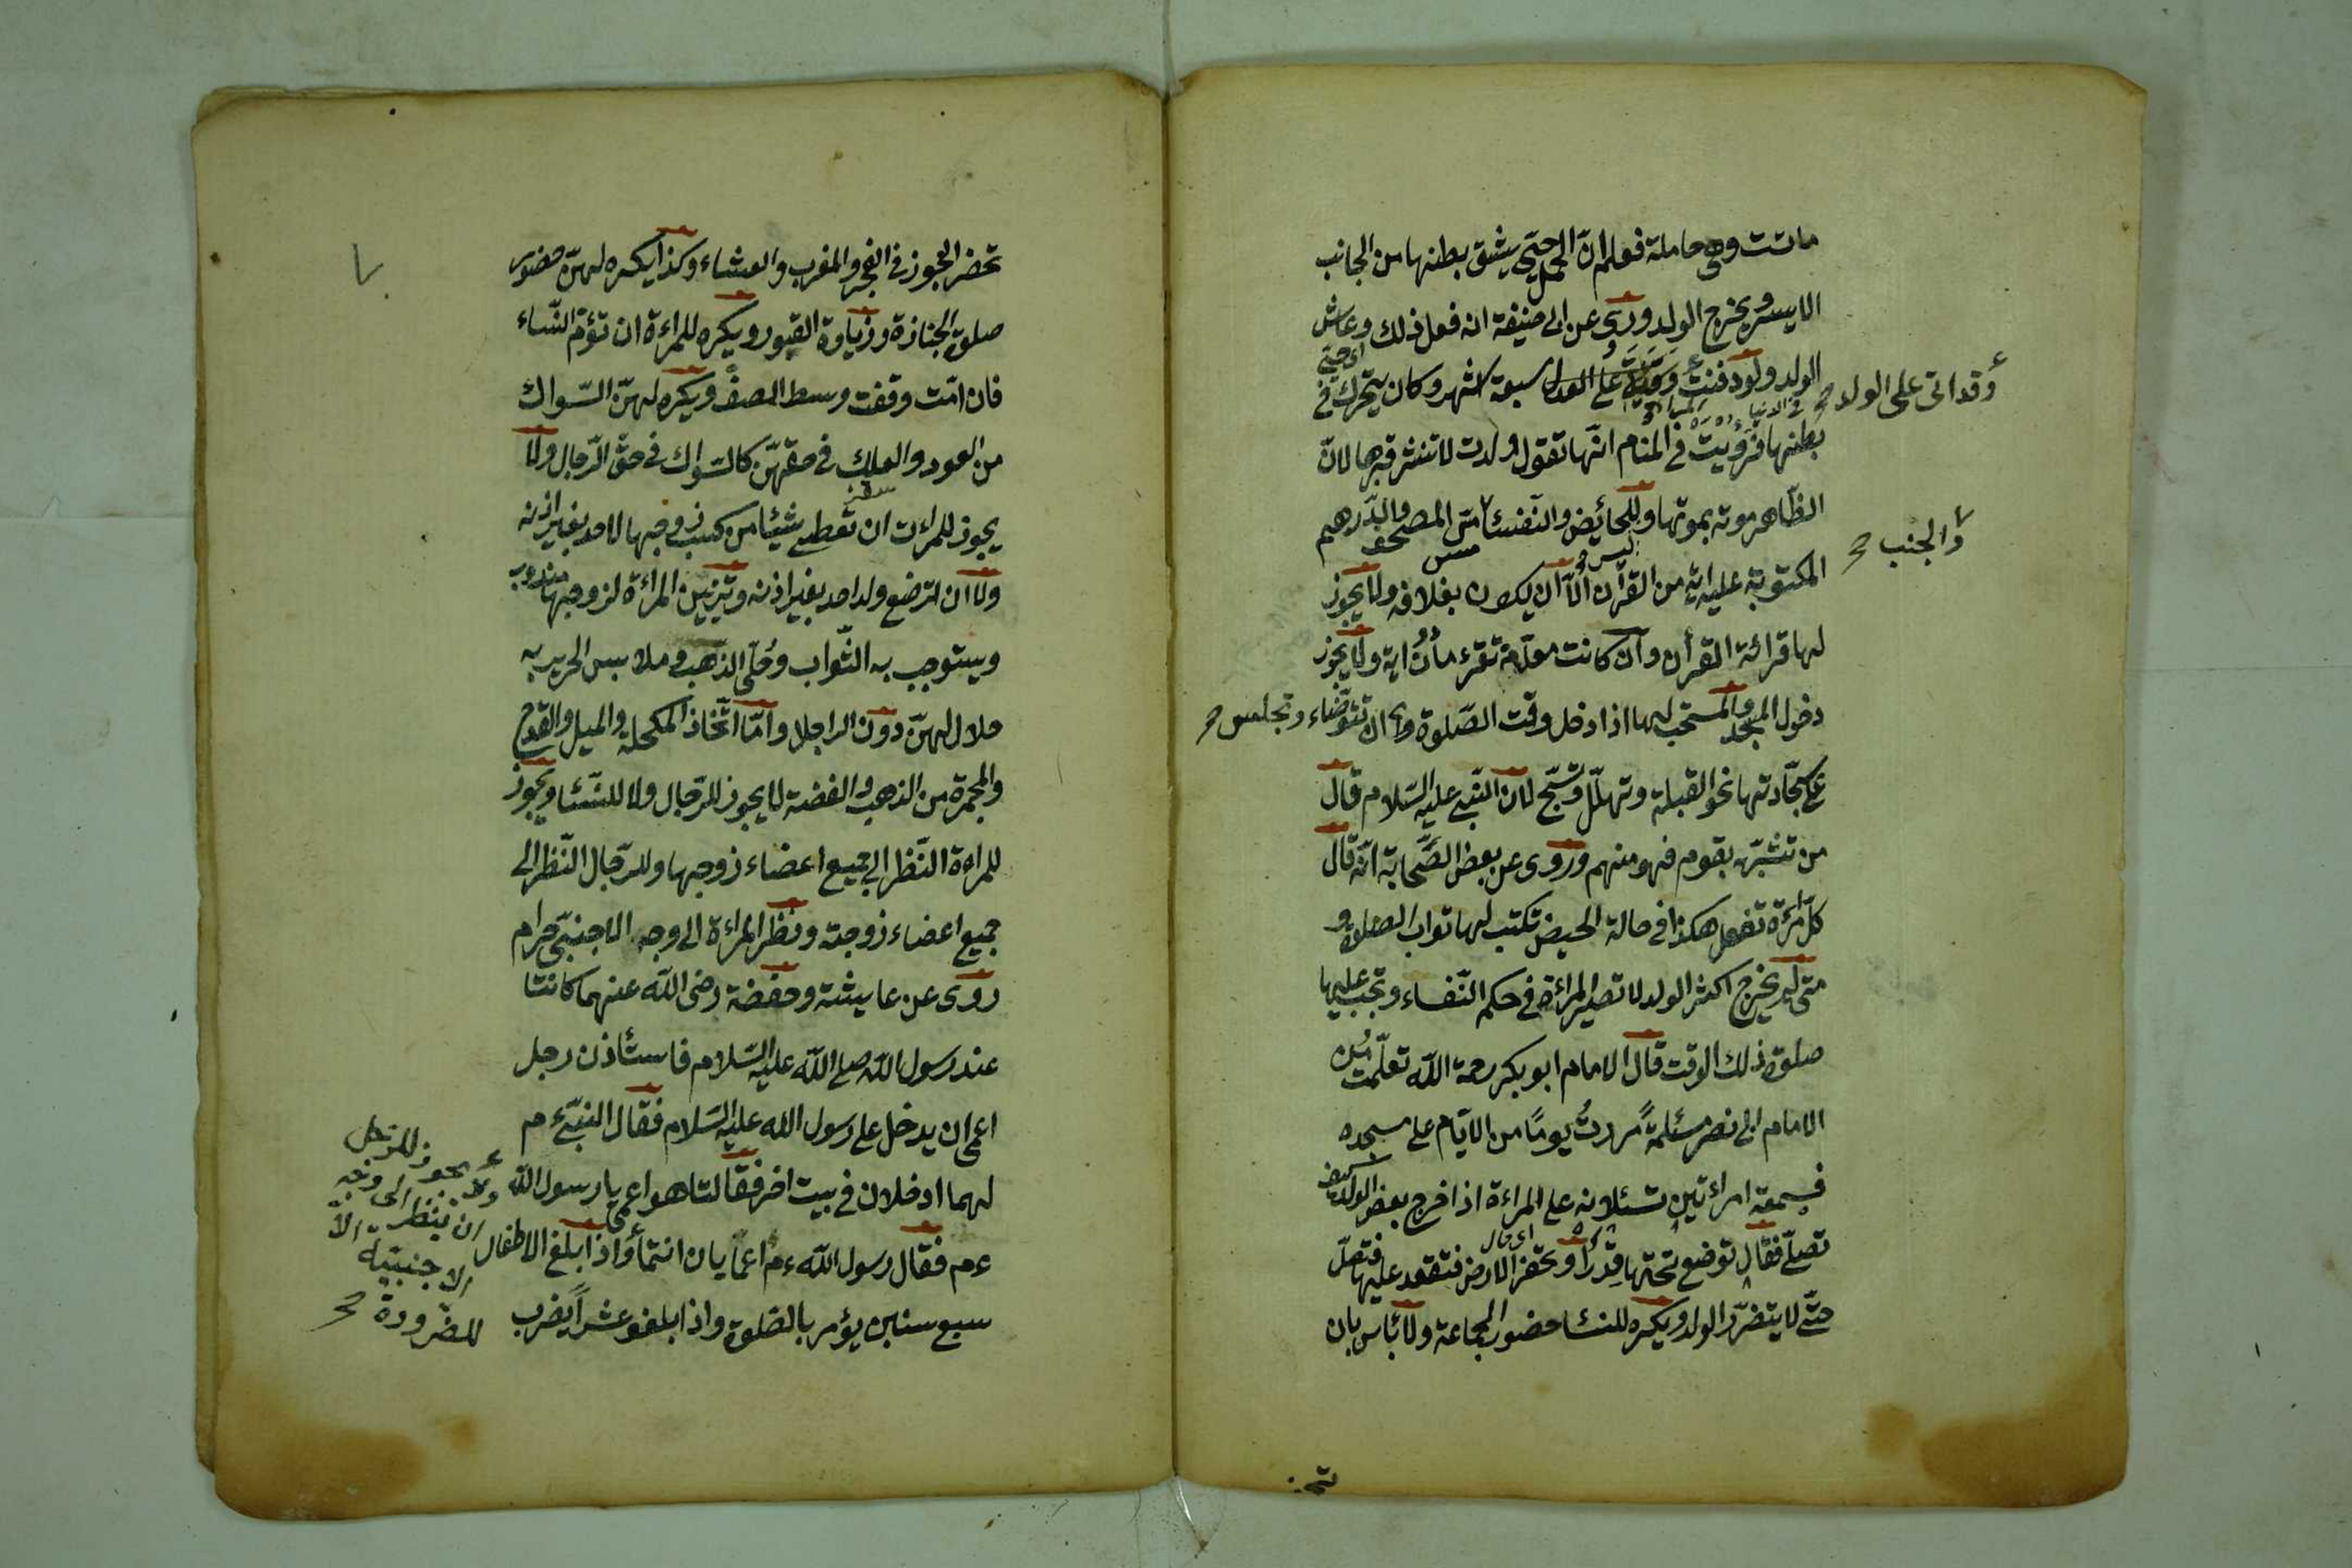 ماتت وهى حاملة فعلم ان الحمل حىّ يشق بطنها من الجانب
الايسر ويخرج الولد وروى عن ابى حنيفة انه فعل ذلك وعاش
الولد ولو دفنت على الولد سبعة اشهر وكان يتحرك فى
وقد اتى على الولد صح
بطنها فرؤيت فى المنام انها تقول ولدت لا تنشر قبرها لانّ
الظّاهر موته بموتها وللحائض والنّفسا مسّ المصحف والدّرهم
والجنب صح
المكتوبة عليه اية من القرآن الّا ان يكون بغلافه ولا يجوز
لها قرائة القرأن وان كانت معلّمة تقرء مادون اية ولا يجوز
دخول المسجد والمستحب لها اذا دخل وقت الصّلوة ان تتوضّاء وتجلس صح
على سجّادتها نحو القبلة وتهلّل وتسّبح لانّ النّبى عليه السّلام قال
من تشبّه بقوم فهو منهم وروى عن بعض الصّحابة انّه قال
كلّ مرئة تفعل هكذا فى حالة الحيض تكتب لها ثواب الصلاة و
متى لم يخرج اكثر الولد لا تصير المراءة فى حكم النّفساء وتجب عليها
صلوة ذلك الوقت قال الامام ابو بكر رحمة اللّه تعلّمت من
الامام ابى نصر مسئلة مررت يومًا من الايّام على مسجده
فسمعة امراءتين تسئلانه على المراءة اذا خرج بعض الولد كيف
تصلّى فقال توضع تحتها قدرًا او تحفر الارض فتقعد عليها فتصلّ
اى قال
حتّى لا يتضرّر الولد ويكره للنسا حضور الجماعة ولا بأس بان
تحضر
تحضر العجوز فى الفجر والمغرب والعشاء وكذا يكره لهنّ حضور
صلوة الجنازة وزيارة القبور ويكره للمراءة ان تؤمّ النّساء
فان امّت وقفت وسط الصفّ ويكره لهنّ السّواك
من العود والعلك فى حقهنّ كالسّواك فى حقّ الرّجال ولا
يجوز للمراءت ان تعطى شيئا من كسب زوجها لاحد بغير اذنه
ولا ان ترضع ولد احد بغير اذنه وتزيين المراءة لزوجها مندوب
ويستوجب به الثّواب وحُلّى الذهب وملابس الحرير
حلال لهنّ دون الراجل وامّا اتّخاذ المكحلة والميل والقدح
والمجمرة من الذهب والفضة لا يجوز للرّجال ولا للنّسا ويجوز
للمراءة النّظر الى جميع اعضاء زوجها وللرّجال النّظر الى
جميع اعضاء زوجته ونظر المراءة الى وجه الاجنبّى حرام
روى عن عايشة وحفضة رضى اللّه عنهما كانتا
عند رسول اللّه صلى اللّه عليه السّلام فاستأذن رجل
اعمى ان يدخل على رسول اللّه عليه السّلام فقال النّبىّ ءم
لهما ادخلان فى بيت اخر فقالتا هو اعمى يا رسول اللّه
ءم فقال رسول اللّه ءم اعمايان انتما واذا بلغ الاطفال
سبع سنين يؤمر بالصّلوة واذا بلغو عشراً يضرب
ولا يجوز للرّجل
ان ينظر الى وجه
الاجنبيّة الّا
للضّرورة صح